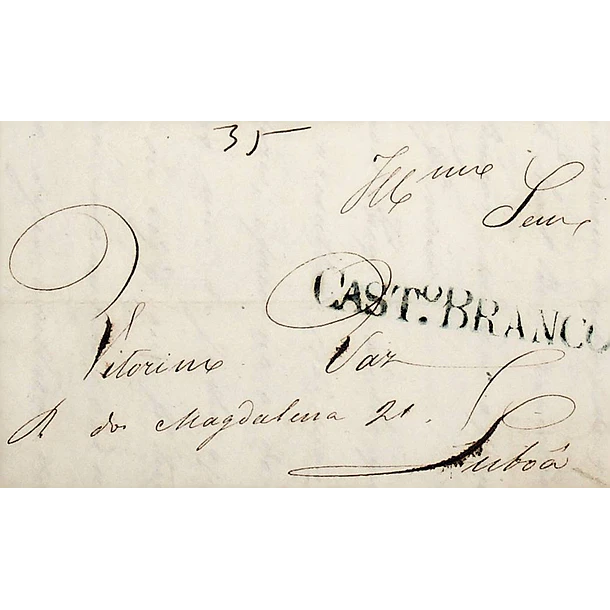 35
Illmo
Senr
CASTO. BRANCO
Vitorino Vaz
R dos Magdalena 21.
Lisboa